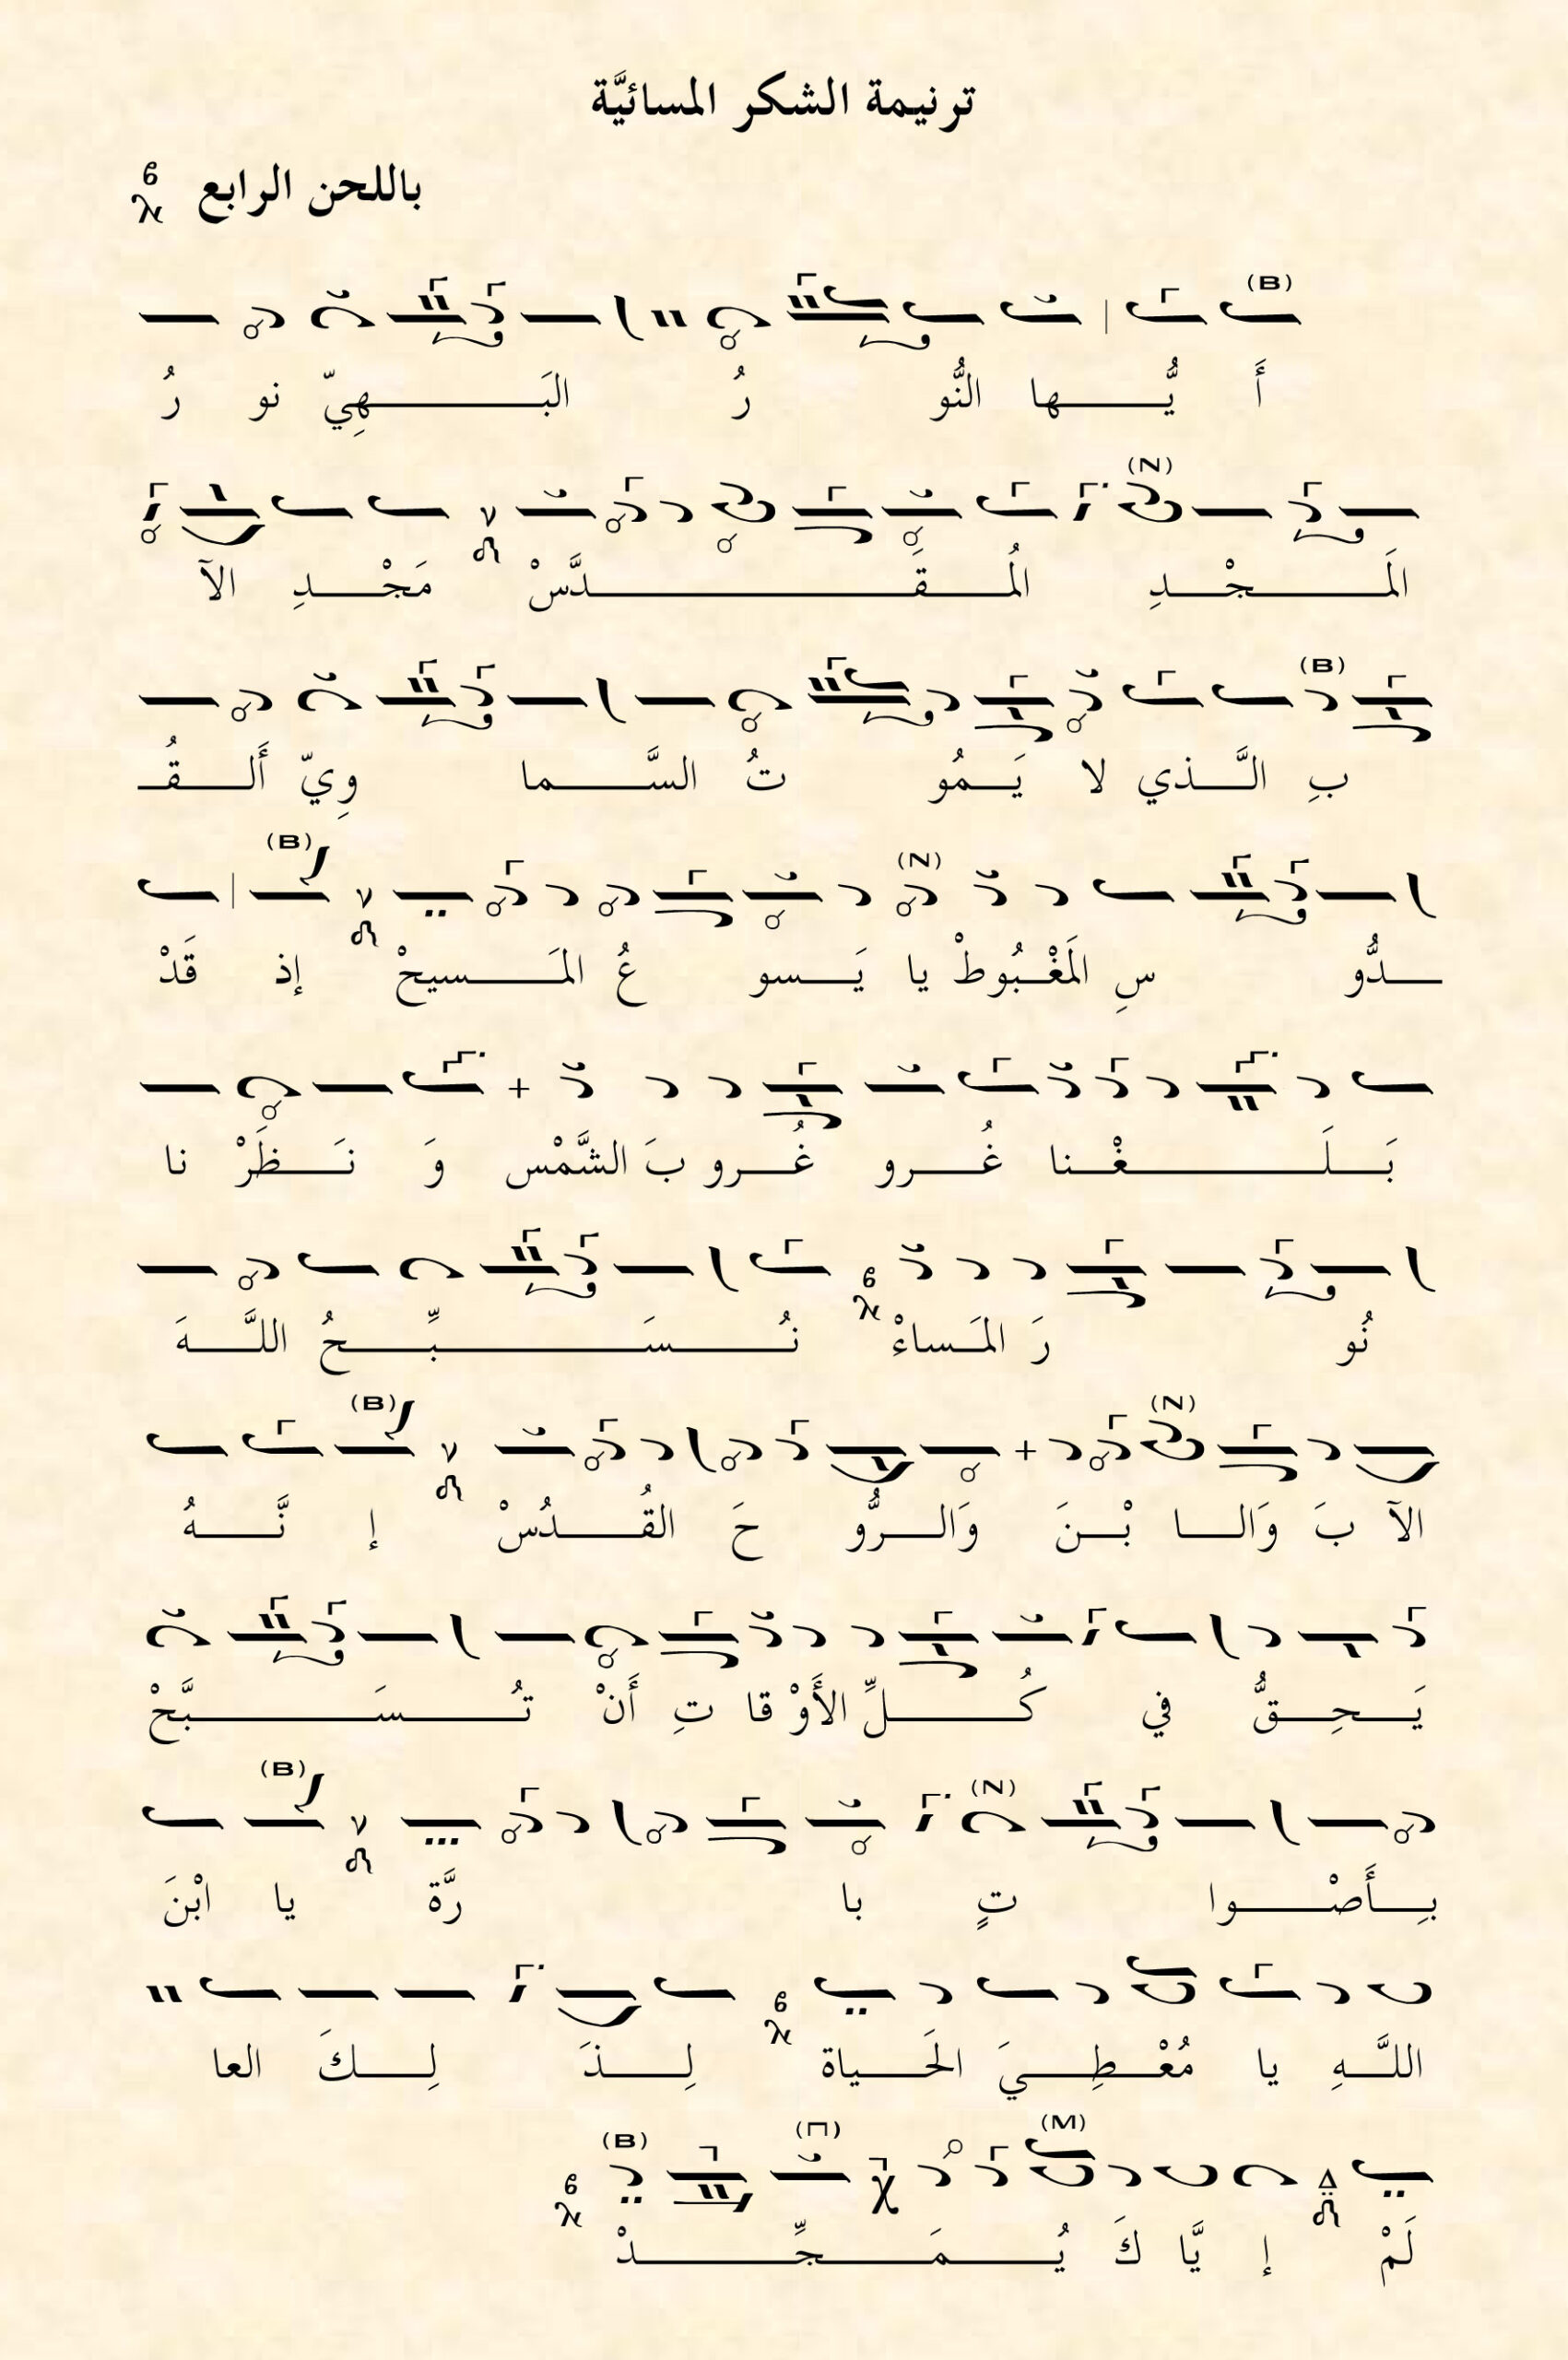 ترنيمة الشكر المسائيَّة
باللحن الرابع
(B)
أَ يُّـــها النُّو رُ البَـــهِيّ نو رُ
(N)
المَـــجْـــدِ المُـــقَـــدَّسْ مَجْـــدِ الآ
(B)
بِ الَّـــذي لا يَـــمُو تُ السَّـــما وِيّ أَلـــقُـ
(N) (B)
ـــدُّو سِ المَغْـــبُوطْ يا يَـــسو عُ المَـــسيحْ إذ قَدْ
بَـــلَـــغْـــنا غُـــرو غُـــرو بَ الشَّمْس وَ نَـــظَرْ نا
نُو رَ المَـــساءْ نُـــسَـــبِّـــحُ اللَّـــهَ
(N) (B)
الآ بَ وَالـــا بْـــنَ وَالـــرُّو حَ القُـــدُسْ إ نَّـــهُ
يَـــحِـــقُّ في كُـــلِّ الأَوْ قا تِ أَنْ تُـــسَـــبَّحْ
(N) (B)
بِـــأَصْـــوا تٍ با رَّة يا ابْنَ
اللَّـــهِ يا مُعْـــطِـــيَ الحَـــياة لِـــذَ لِـــكَ العا
(M) (Π) (B)
لَمْ إ يَّا كَ يُـــمَـــجِّـــدْ